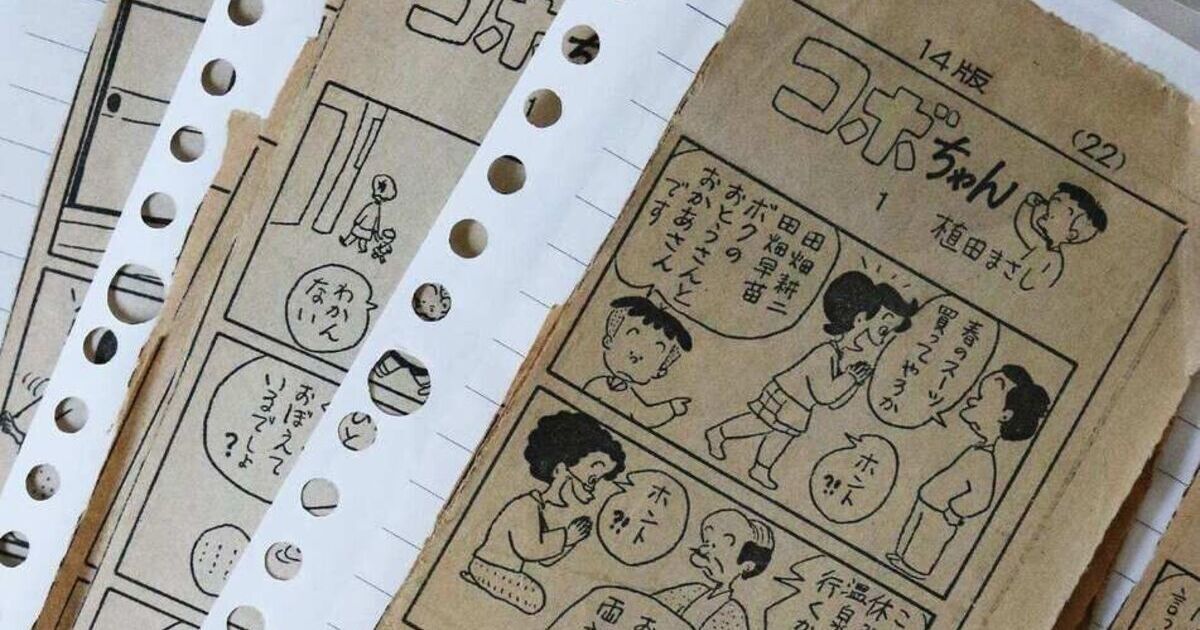 14版
(22)
コボちゃん
1
植田まさし
春のスーツ
買ってやろか
ホント
?!
田畑耕二
田畑早苗
ボクの
おとうさんと
おかあさん
です
温泉
行くか
ホント
?!
お
両
コボち
1
わかん
ない
おぼえて
いるでしょ
?